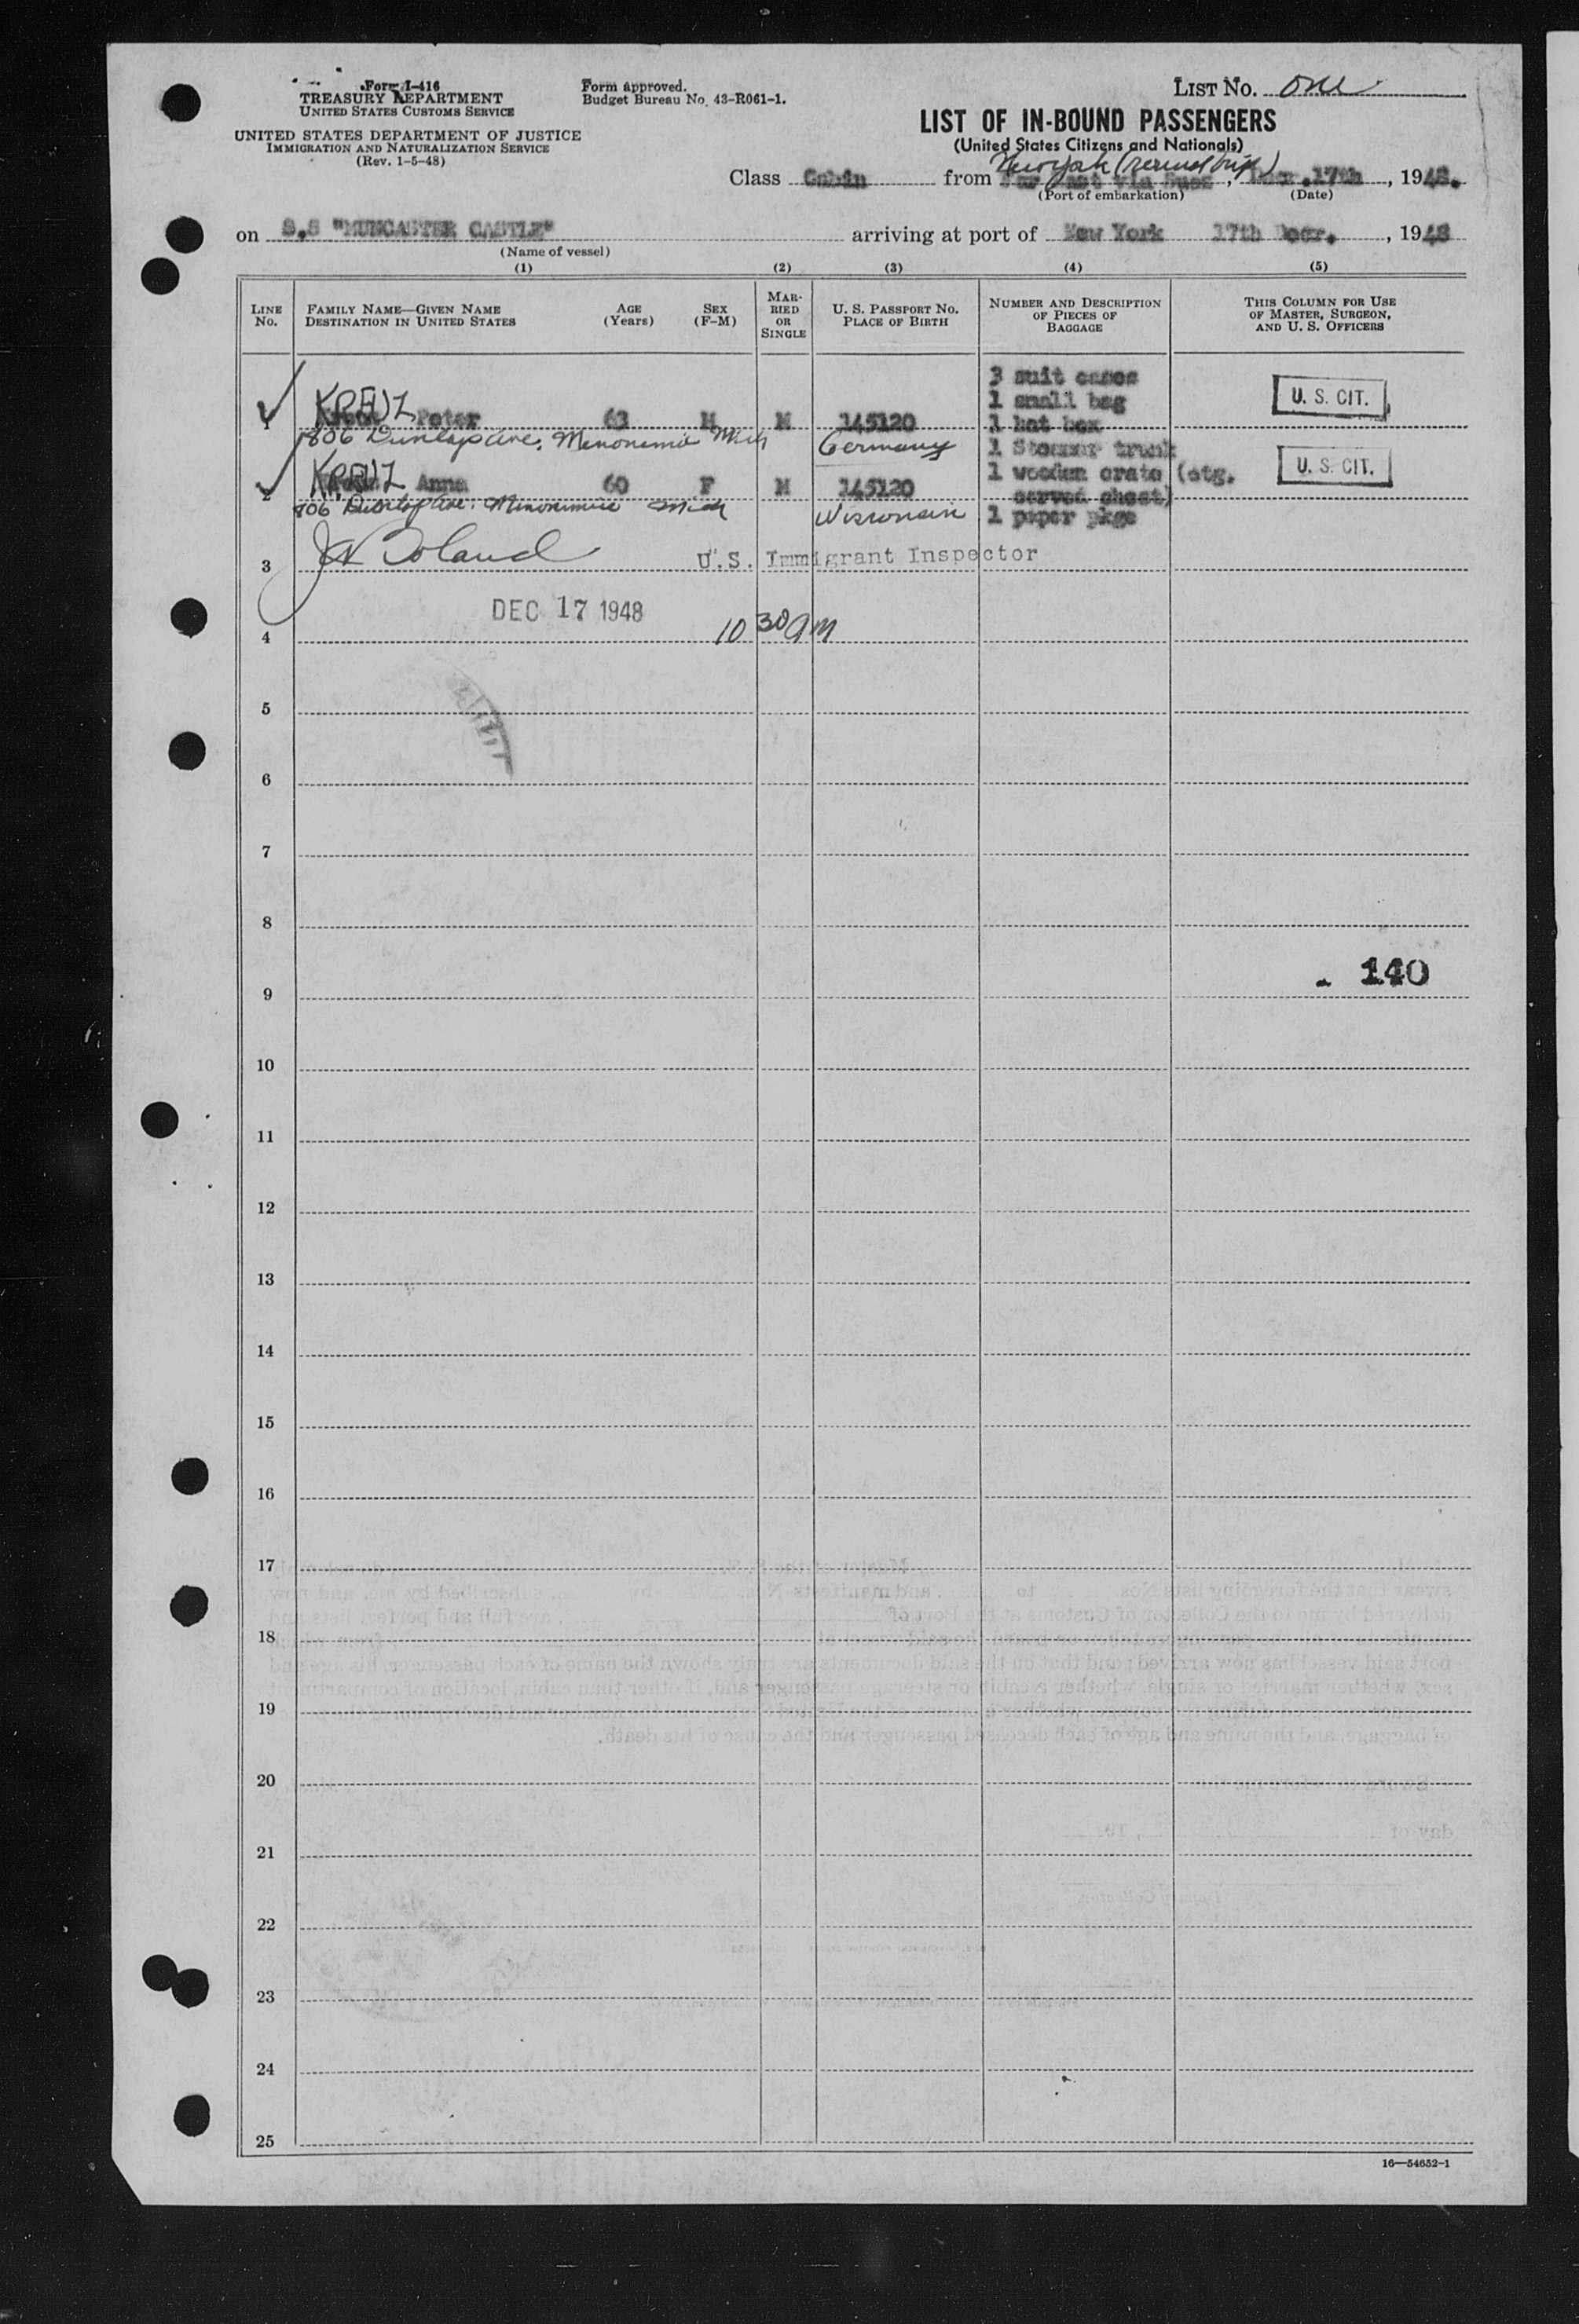 Form I-416
TREASURY DEPARTMENT
UNITED STATES CUSTOMS SERVICE
UNITED STATES DEPARTMENT OF JUSTICE
IMMIGRATION AND NATURALIZATION SERVICE
(Rev. 1-5-48)
Form approved.
Budget Bureau No. 43-R061-1.
LIST NO. one
LIST OF IN-BOUND PASSENGERS
(United States Citizens and Nationals)
New York (round trip)
Class Cabin from Far East via Suez, Decr. 17th, 1948.
(Port of embarkation) (Date)
on S.S "MUNCASTER CASTLE" arriving at port of New York 17th Decr., 1948
(Name of vessel)
(1) (2) (3) (4) (5)
LINE NO.
FAMILY NAME—GIVEN NAME
DESTINATION IN UNITED STATES
AGE
(Years)
SEX
(F-M)
MARRIED OR SINGLE
U. S. PASSPORT NO.
PLACE OF BIRTH
NUMBER AND DESCRIPTION
OF PIECES OF
BAGGAGE
THIS COLUMN FOR USE
OF MASTER, SURGEON,
AND U. S. OFFICERS
3 suit cases
1 small bag
KREUZ Peter 63 M M 145120 1 hat box U. S. CIT.
1806 Dunlap Ave. Menonemie Mich Germany 1 Steamer trunk
1 wooden crate (ctg.
2 KREUZ Anna 60 F M 145120 carved chest) U. S. CIT.
806 Dunlap Ave. Menonimie Mich Wisconsin 1 paper pkge
3 Boland U.S. Immigrant Inspector
DEC 17 1948
4 10 30 am
5
6
7
8
140
9
10
11
12
13
14
15
16
17
18
19
20
21
22
23
24
25
16—54652-1